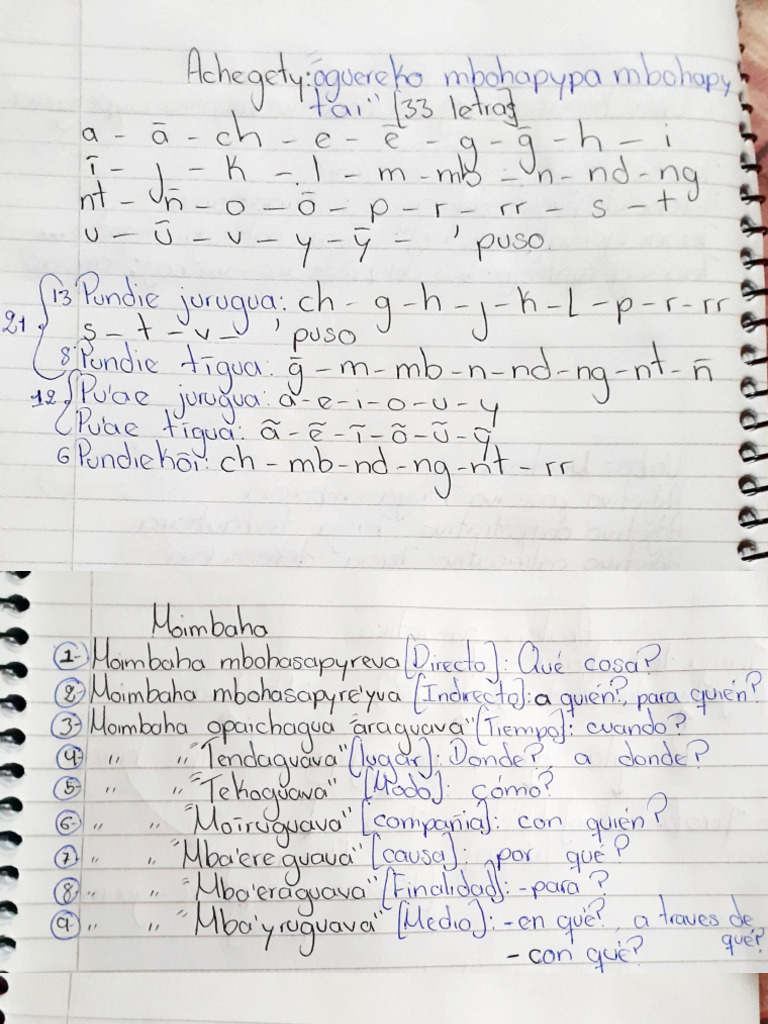 Achegety: oguereko mbohapypa mbohapy
tai" [33 letras]
a - ā - ch - e - ē - g - ḡ - h - i
ī - j - k - l - m - mb - n - nd - ng
nt - ñ - o - ō - p - r - rr - s - t
u - ū - v - y - ȳ - ' puso
21 13 Pundie jurugua: ch - g - h - j - k - l - p - r - rr
s - t - v - ' puso
8 Pundie tīgua: ḡ - m - mb - n - nd - ng - nt - ñ
12 Pu'ae jurugua: a - e - i - o - u - y
Pu'ae tīgua: ã - ẽ - ĩ - õ - ũ - ỹ
6 Pundiekōi: ch - mb - nd - ng - nt - rr
Moimbaha
1- Moimbaha mbohasapyreva [Directo]: Qué cosa?
2- Moimbaha mbohasapyre'yva [Indirecto]: a quién?, para quién?
3- Moimbaha opaichagua "araguava" [Tiempo]: cuando?
4- " " "Tendaguava" [lugar]: Donde?, a donde?
5- " " "Tekoguava" [Modo]: cómo?
6- " " "Moīruguava" [compañia]: con quién?
7- " " "Mba'ere guava" [causa]: por qué?
8- " " "Mba'eraguava" [Finalidad]: -para?
9- " " "Mba'yruguava" [Medio]: -en qué?, a traves de
qué?
- con qué?